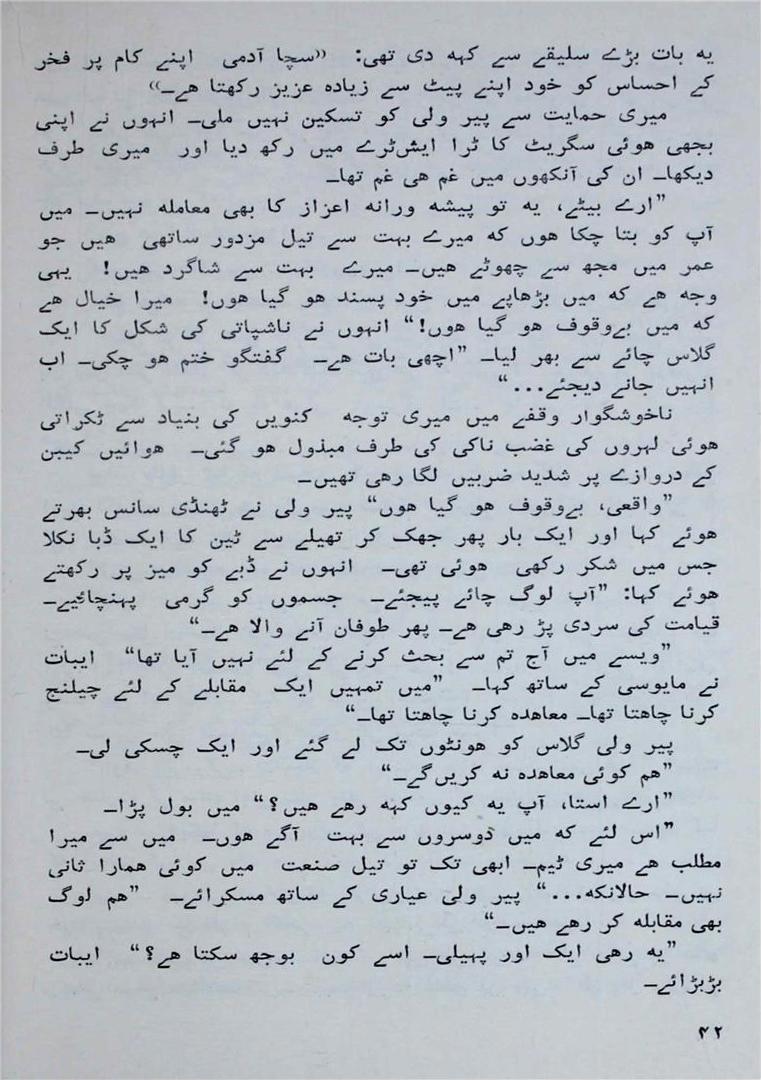 یہ بات بڑے سلیقے سے کہہ دی تھی: «سچا آدمی اپنے کام پر فخر
کے احساس کو خود اپنے پیٹ سے زیادہ عزیز رکھتا ہے۔»
میری حمایت سے پیر ولی کو تسکین نہیں ملی۔ انہوں نے اپنی
بجھی ہوئی سگریٹ کا ٹرا ایشٹرے میں رکھ دیا اور میری طرف
دیکھا۔ ان کی آنکھوں میں غم ہی غم تھا۔
”ارے بیٹے، یہ تو پیشہ ورانہ اعزاز کا بھی معاملہ نہیں۔ میں
آپ کو بتا چکا ہوں کہ میرے بہت سے تیل مزدور ساتھی ہیں جو
عمر میں مجھ سے چھوٹے ہیں۔ میرے بہت سے شاگرد ہیں! یہی
وجہ ہے کہ میں بڑھاپے میں خود پسند ہو گیا ہوں! میرا خیال ہے
کہ میں بےوقوف ہو گیا ہوں!“ انہوں نے ناشپاتی کی شکل کا ایک
گلاس چائے سے بھر لیا۔ ”اچھی بات ہے۔ گفتگو ختم ہو چکی۔ اب
انہیں جانے دیجئے...“
ناخوشگوار وقفے میں میری توجہ کنویں کی بنیاد سے ٹکراتی
ہوئی لہروں کی غضب ناکی کی طرف مبذول ہو گئی۔ ہوائیں کیبن
کے دروازے پر شدید ضربیں لگا رہی تھیں۔
”واقعی، بےوقوف ہو گیا ہوں“ پیر ولی نے ٹھنڈی سانس بھرتے
ہوئے کہا اور ایک بار پھر جھک کر تھیلے سے ٹین کا ایک ڈبا نکلا
جس میں شکر رکھی ہوئی تھی۔ انہوں نے ڈبے کو میز پر رکھتے
ہوئے کہا: ”آپ لوگ چائے پیجئے۔ جسموں کو گرمی پہنچائیے۔
قیامت کی سردی پڑ رہی ہے۔ پھر طوفان آنے والا ہے۔“
”ویسے میں آج تم سے بحث کرنے کے لئے نہیں آیا تھا“ ایبات
نے مایوسی کے ساتھ کہا۔ ”میں تمہیں ایک مقابلے کے لئے چیلنج
کرنا چاہتا تھا۔ معاہدہ کرنا چاہتا تھا۔“
پیر ولی گلاس کو ہونٹوں تک لے گئے اور ایک چسکی لی۔
”ہم کوئی معاہدہ نہ کریں گے۔“
”ارے استا، آپ یہ کیوں کہہ رہے ہیں؟“ میں بول پڑا۔
”اس لئے کہ میں دوسروں سے بہت آگے ہوں۔ میں سے میرا
مطلب ہے میری ٹیم۔ ابھی تک تو تیل صنعت میں کوئی ہمارا ثانی
نہیں۔ حالانکہ...“ پیر ولی عیاری کے ساتھ مسکرائے۔ ”ہم لوگ
بھی مقابلہ کر رہے ہیں۔“
”یہ رہی ایک اور پہیلی۔ اسے کون بوجھ سکتا ہے؟“ ایبات
بڑبڑائے۔
۴۲